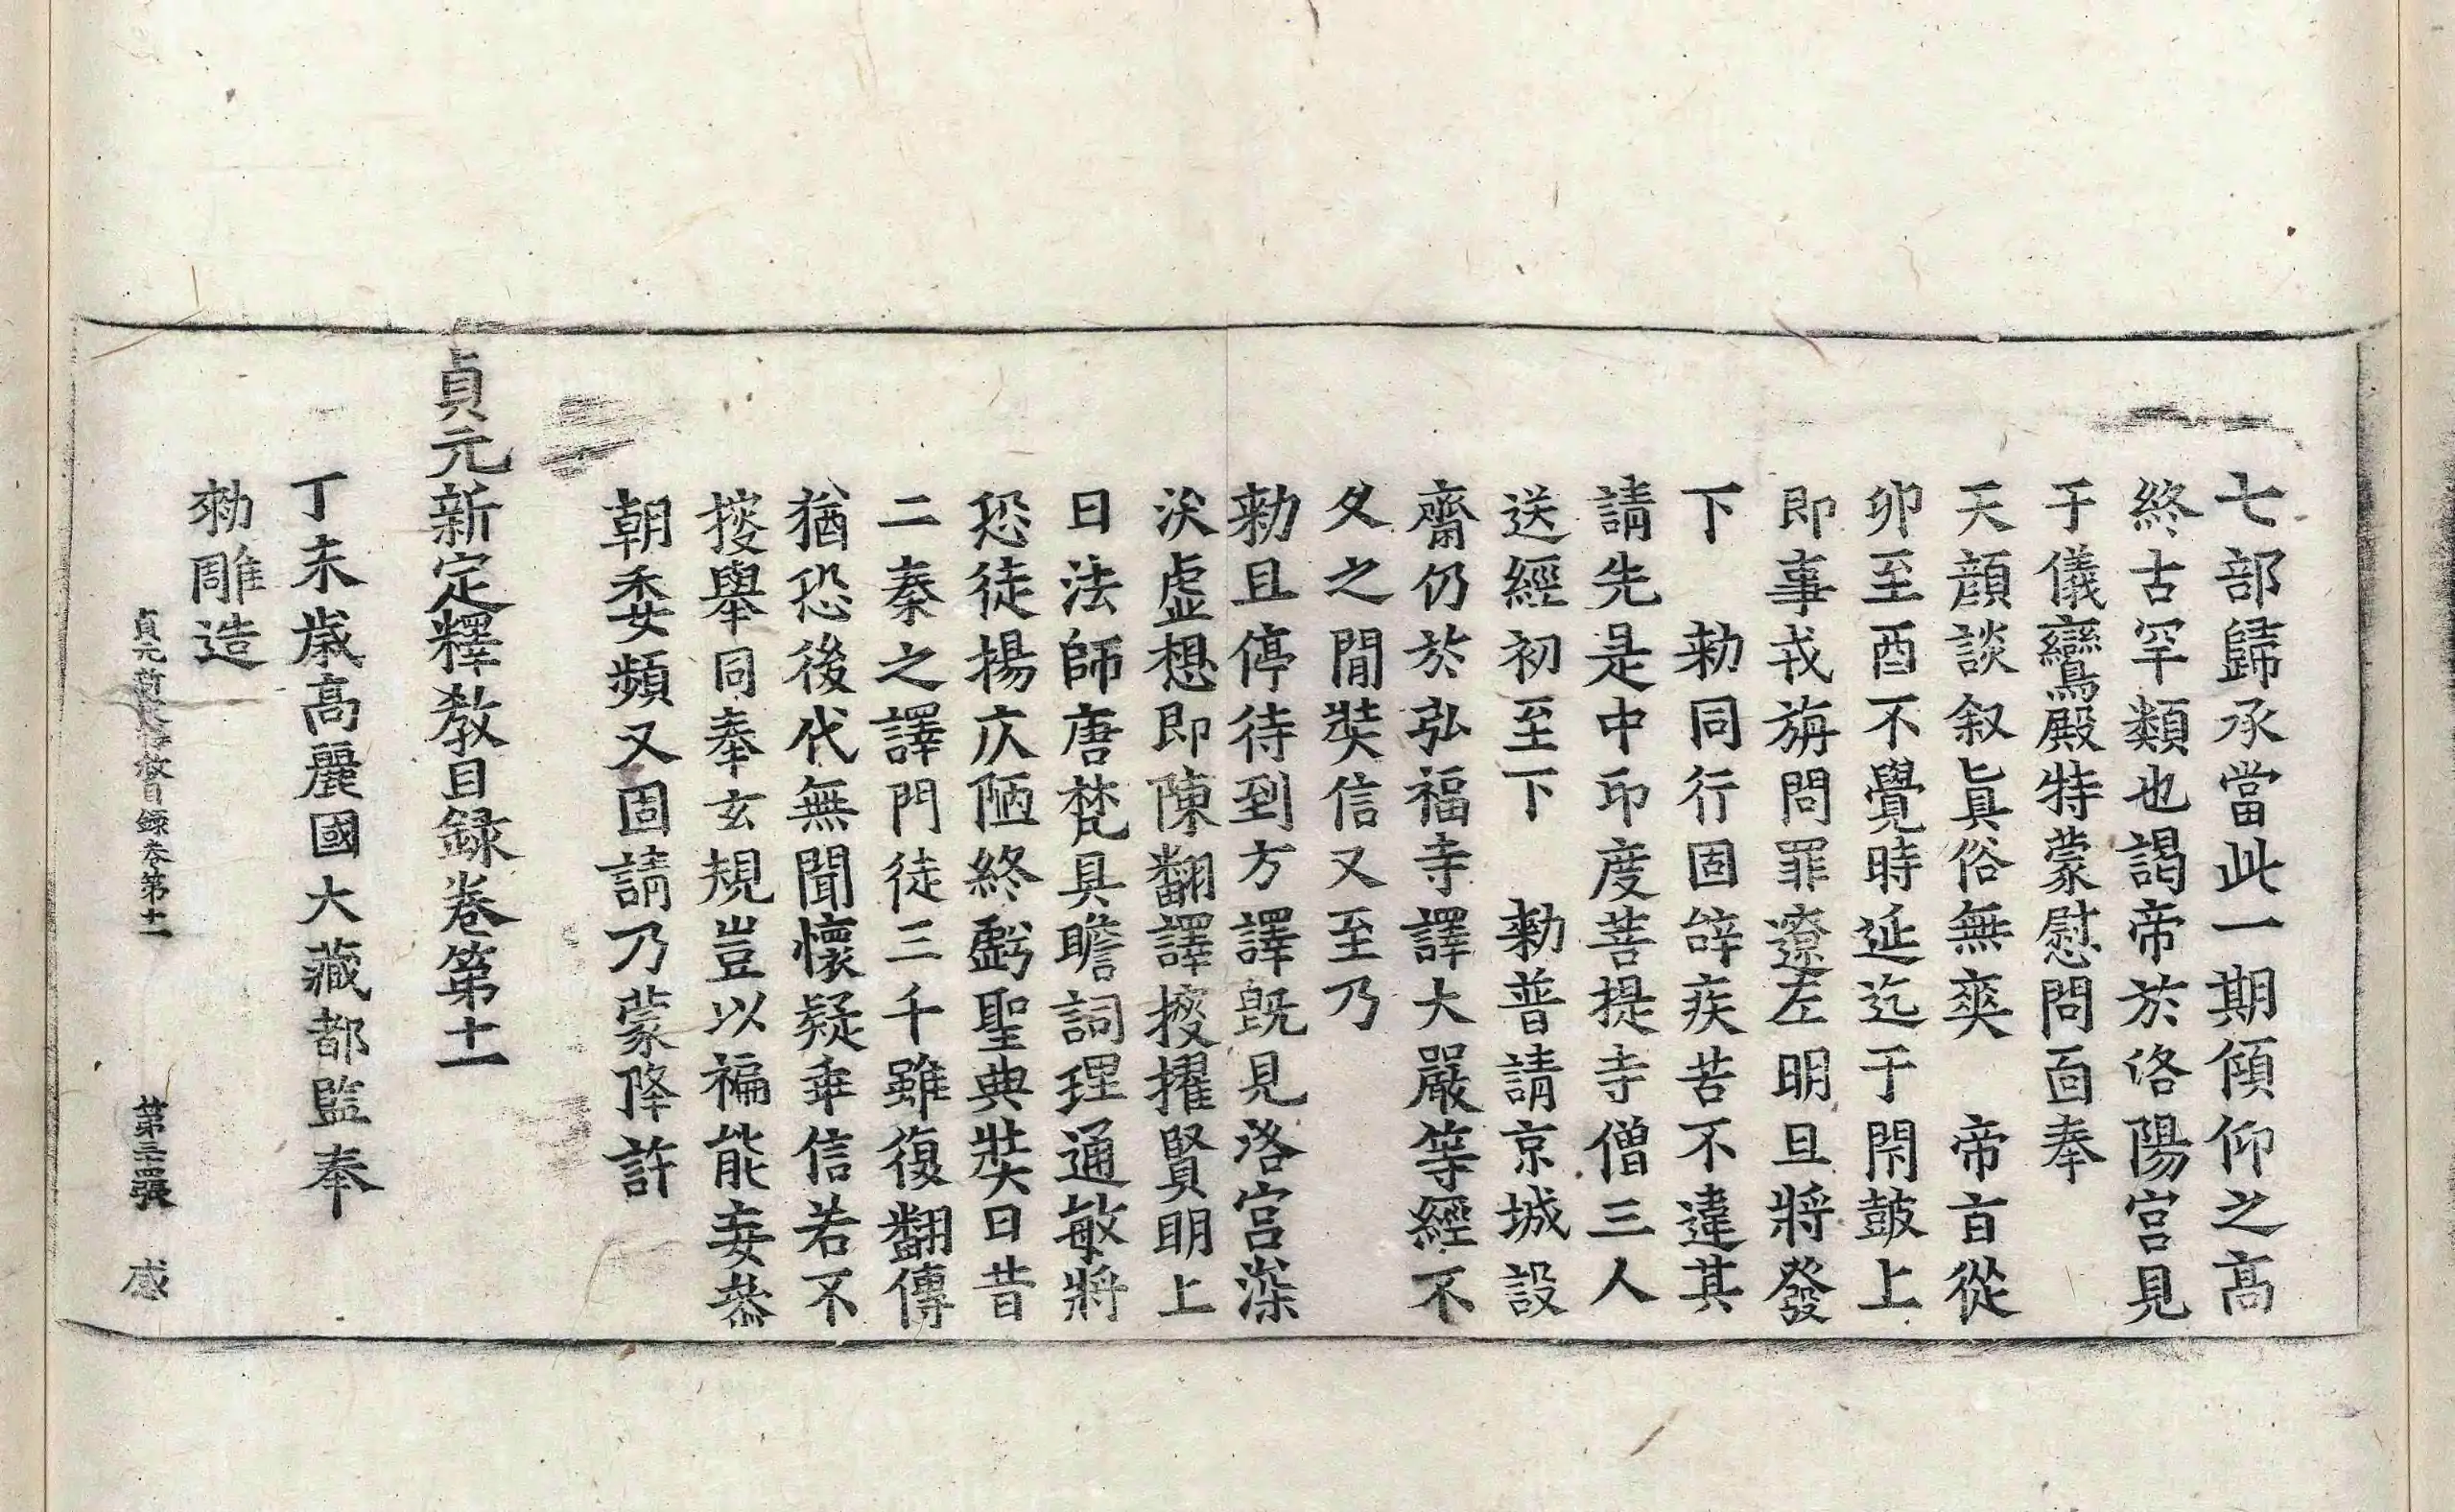 七部歸承當此一期傾仰之高
終古罕類也謁帝於洛陽宮見
于儀鸞殿特蒙慰問面奉
天顔談叙眞俗無爽　帝旨從
卯至酉不覺時延迄于閇鼓上
即事戎旃問罪遼左明旦將發
下　勅同行固辝疾苦不違其
請先是中印度菩提寺僧三人
送經初至下　勅普請京城設
齋仍於弘福寺譯大嚴等經不
久之閒奘信又至乃
勅且停待到方譯旣見洛宮深
沃虛想即陳翻譯搜擢賢明上
曰法師唐梵具瞻詞理通敏將
恐徒揚仄陋終虧聖典奘曰昔
二秦之譯門徒三千雖復翻傳
猶恐後代無聞懷疑乖信若不
搜擧同奉玄規豈以褊能妄叅
朝委頻又固請乃蒙降許
貞元新定釋敎目録卷第十一
丁未歳高麗國大藏都監奉
勅雕造
貞元新定釋敎目録卷第十一　第三張　感